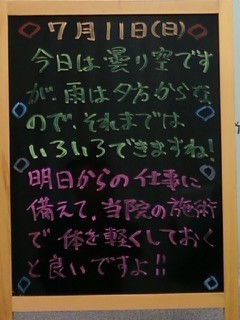 7月11日(日)
今日は曇り空です
が、雨は夕方からな
ので、それまでは
いろいろできますね!
明日からの仕事に
備えて、当院の施術
で体を軽くしておく
と良いですよ!!